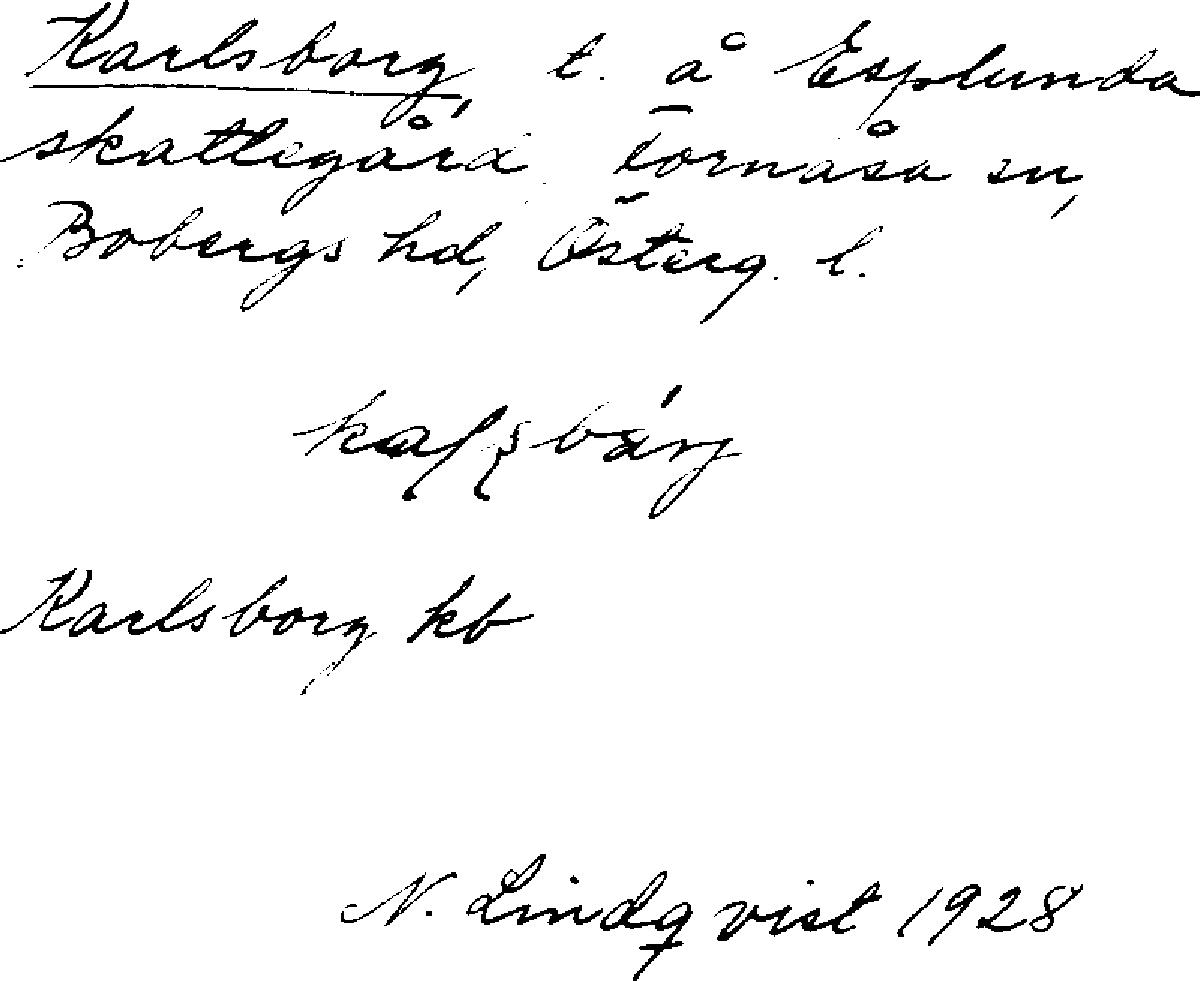 Karlsborg, t. å Esplunda
skattegård Fornåsa sn,
Bobergs hd, Österg. l.
Karlsborg kb
N. Lindqvist 1928